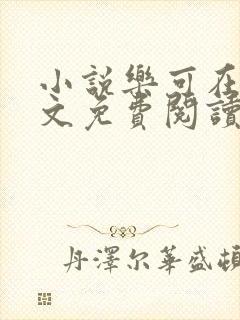 小說樂可在
文免費閱讀
丹澤尔華盛頓